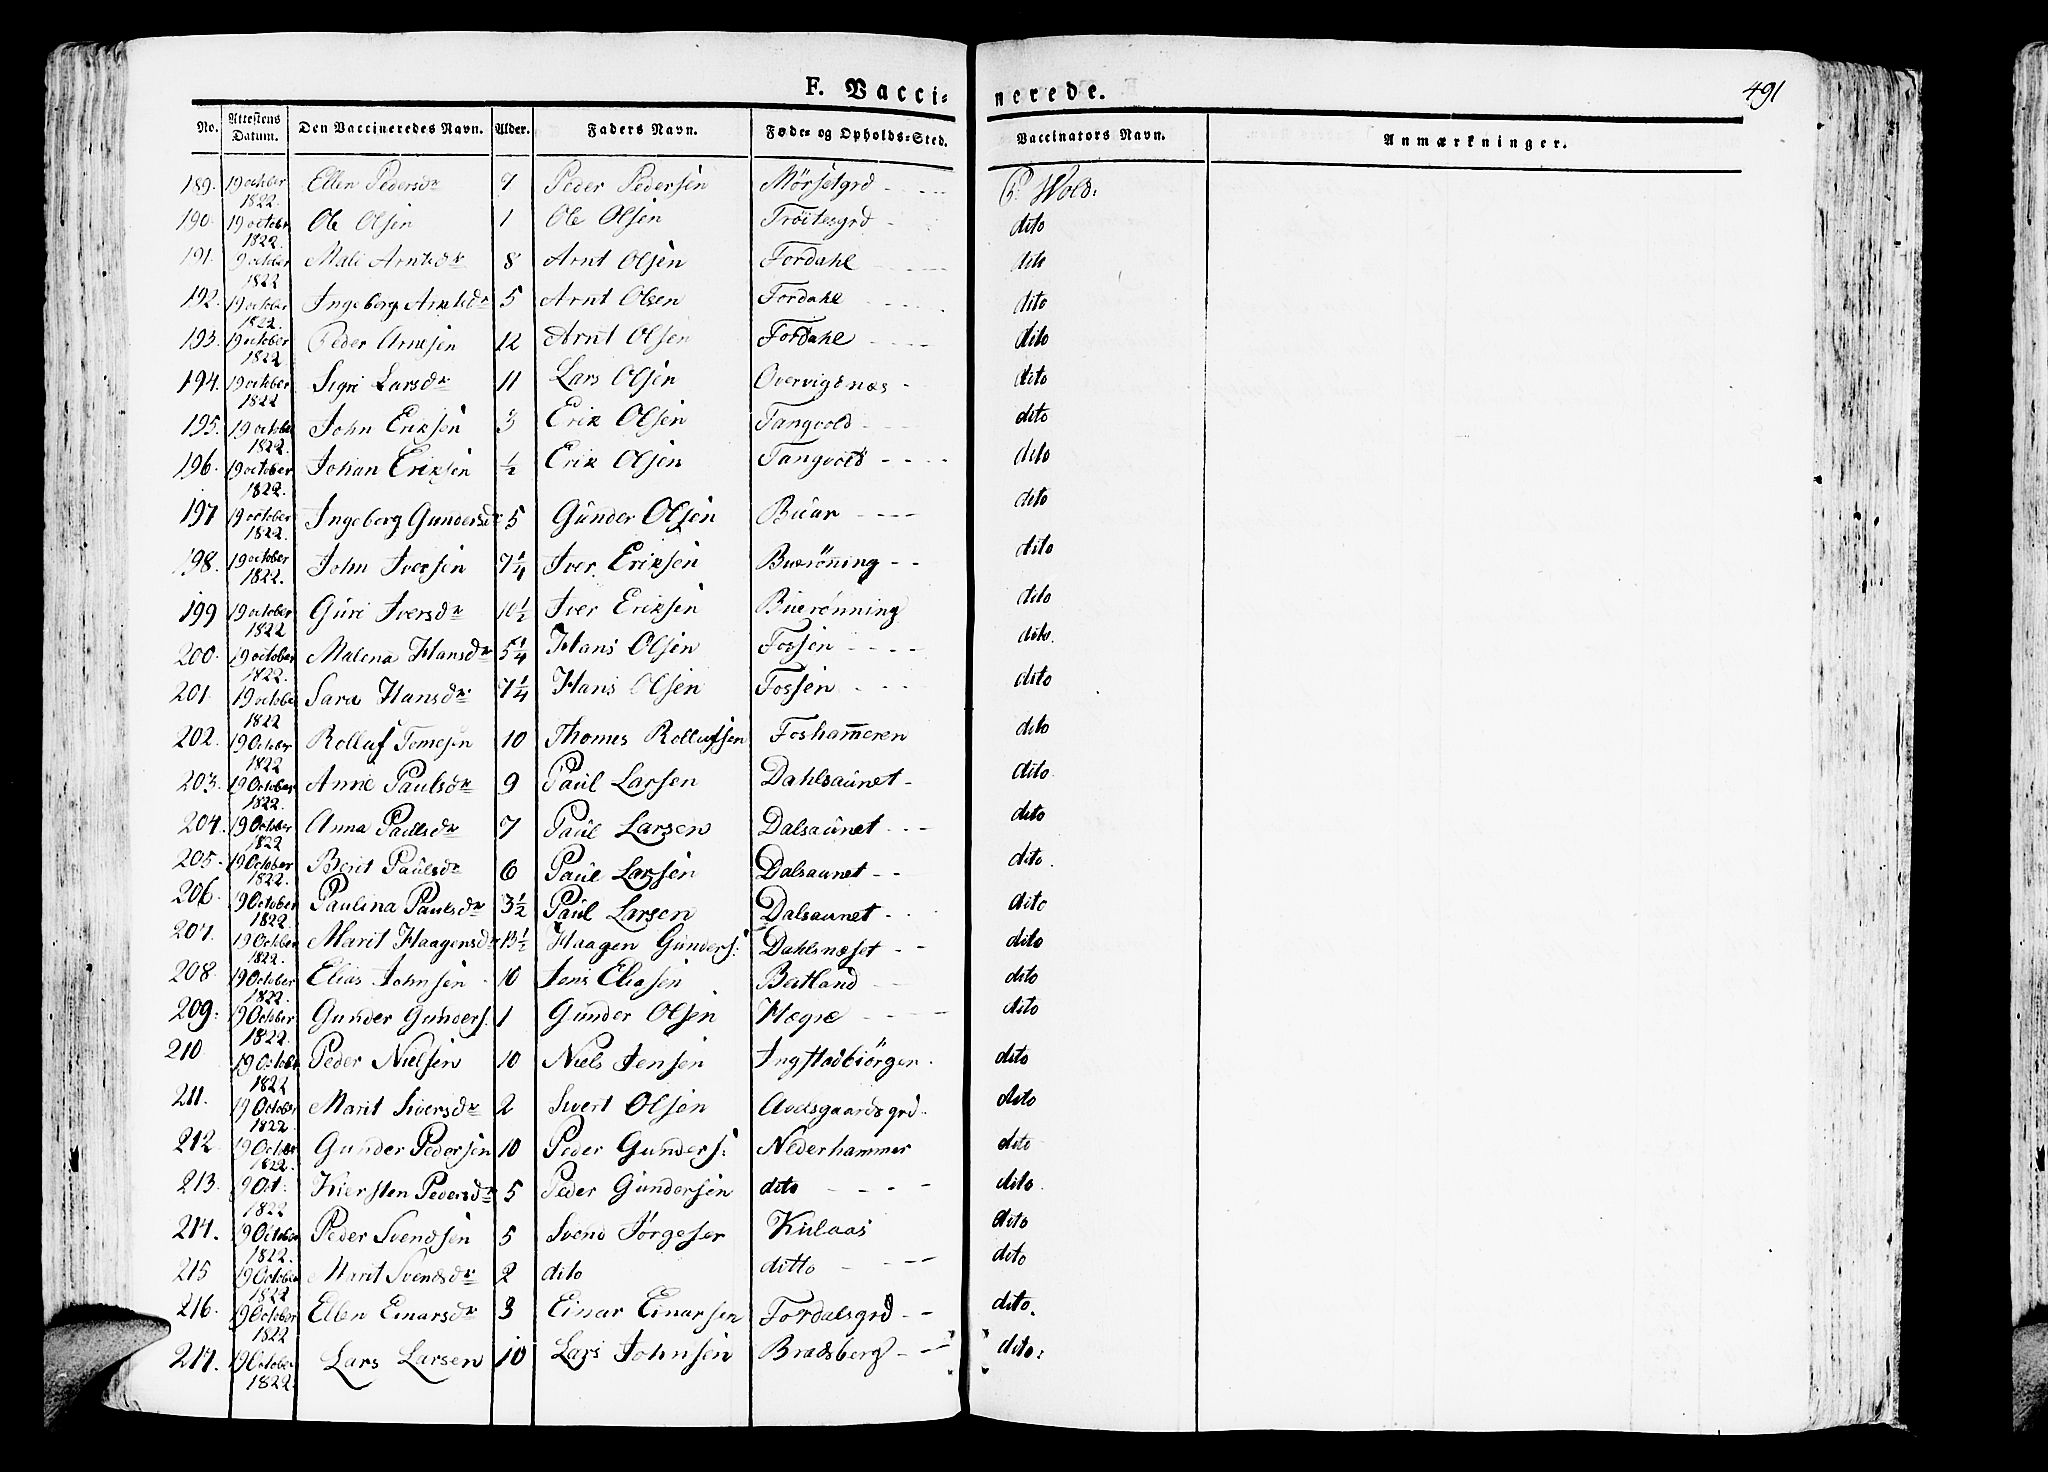 F. Vacci-
nerede.
491
No. Attestens Datum. Den Vaccineredes Navn. Alder. Faders Navn. Føde- og Opholds-Sted. Vaccinators Navn. Anmærkninger.
189. 19 octber 1822. Ellen Pedersdr 7 Peder Pedersen Mörsetgrd P. Wold:
190. 19 octobr 1822. Ole Olsen 1 Ole Olsen Tröitesgrd dito
191. 9 octber 1822 Mali Arntsdr 8 Arnt Olsen Fordahl dito
192. 19 octobr 1822. Ingeborg Arntsdr 5 Arnt Olsen Fordahl dito
193. 19 october 1822 Peder Arntsen 12 Arnt Olsen Fordahl dito
194. 19 octber 1822 Sigri Larsdr 11 Lars Olsen Overvigenæs dito
195. 19 october 1822. John Eriksen 3 Erik Olsen Tangvold dito
196. 19 october 1822. Johan Eriksen ½ Erik Olsen Tangvold dito
197 19 october 1822. Ingeborg Gundersdr 5 Gunder Olsen Buar dito
198. 19 october 1822. John Iversen 7¼ Iver Eriksen Buerönning dito
199 19 october 1822 Guri Iversdr 10½ Iver Eriksen Buerönning dito
200. 19 october 1822. Malena Hansdr 5¼ Hans Olsen Fossen dito.
201. 19 october 1822 Sara Hansdr 7¼ Hans Olsen Fossen dito
202. 19 October 1822 Rolluf Tomesen 10 Thomes Rollufsen Foshammeren dito
203. 19 October 1822. Anne Paulsdr 9 Paul Larsen Dahlsaunet dito
204. 19 October 1822 Anna Paulsdr 7 Paul Larsen Dalsaunet dito
205. 19 October 1822. Berit Paulsdr 6 Paul Larsen Dalsaunet dito.
206. 19 October 1822. Paulina Paulsdr 3½ Paul Larsen Dalsaunet dito
207. 19 October 1822. Marit Haagensdr 13½ Haagen Gunders: Dahlsnæset dito
208. 19 October 1822. Elias Johnsen 10 Jens Eliasen Beitland dito
209. 19 October 1822. Gunder Gunders. 1 Gunder Olsen Hegre dito
210 19 October 1822 Peder Nielsen 10 Niels Jensen Ingstadbjörgen dito
211. 19 October 1822. Marit Siversdr 2 Sivert Olsen Auelsgaardsgrd dito
212. 19 October 1822. Gunder Pedersen 10 Peder Gunders: Nederhammer dito
213. 9 Oct. 1822 Kiersten Pedersdr 5 Peder Gundersen dito dito
214. 19 October 1822. Peder Svendsen 5 Svend Jörgeser Kulaas dito
215 19 October 1822 Marit Svendsdr 2 dito ditto dito
216. 19 October 1822 Ellen Einarsdr 3 Einar Einarsen Fordalsgrd dito.
217. 19 October 1822. Lars Larsen 10 Lars Johnsen Bradsberg dito: